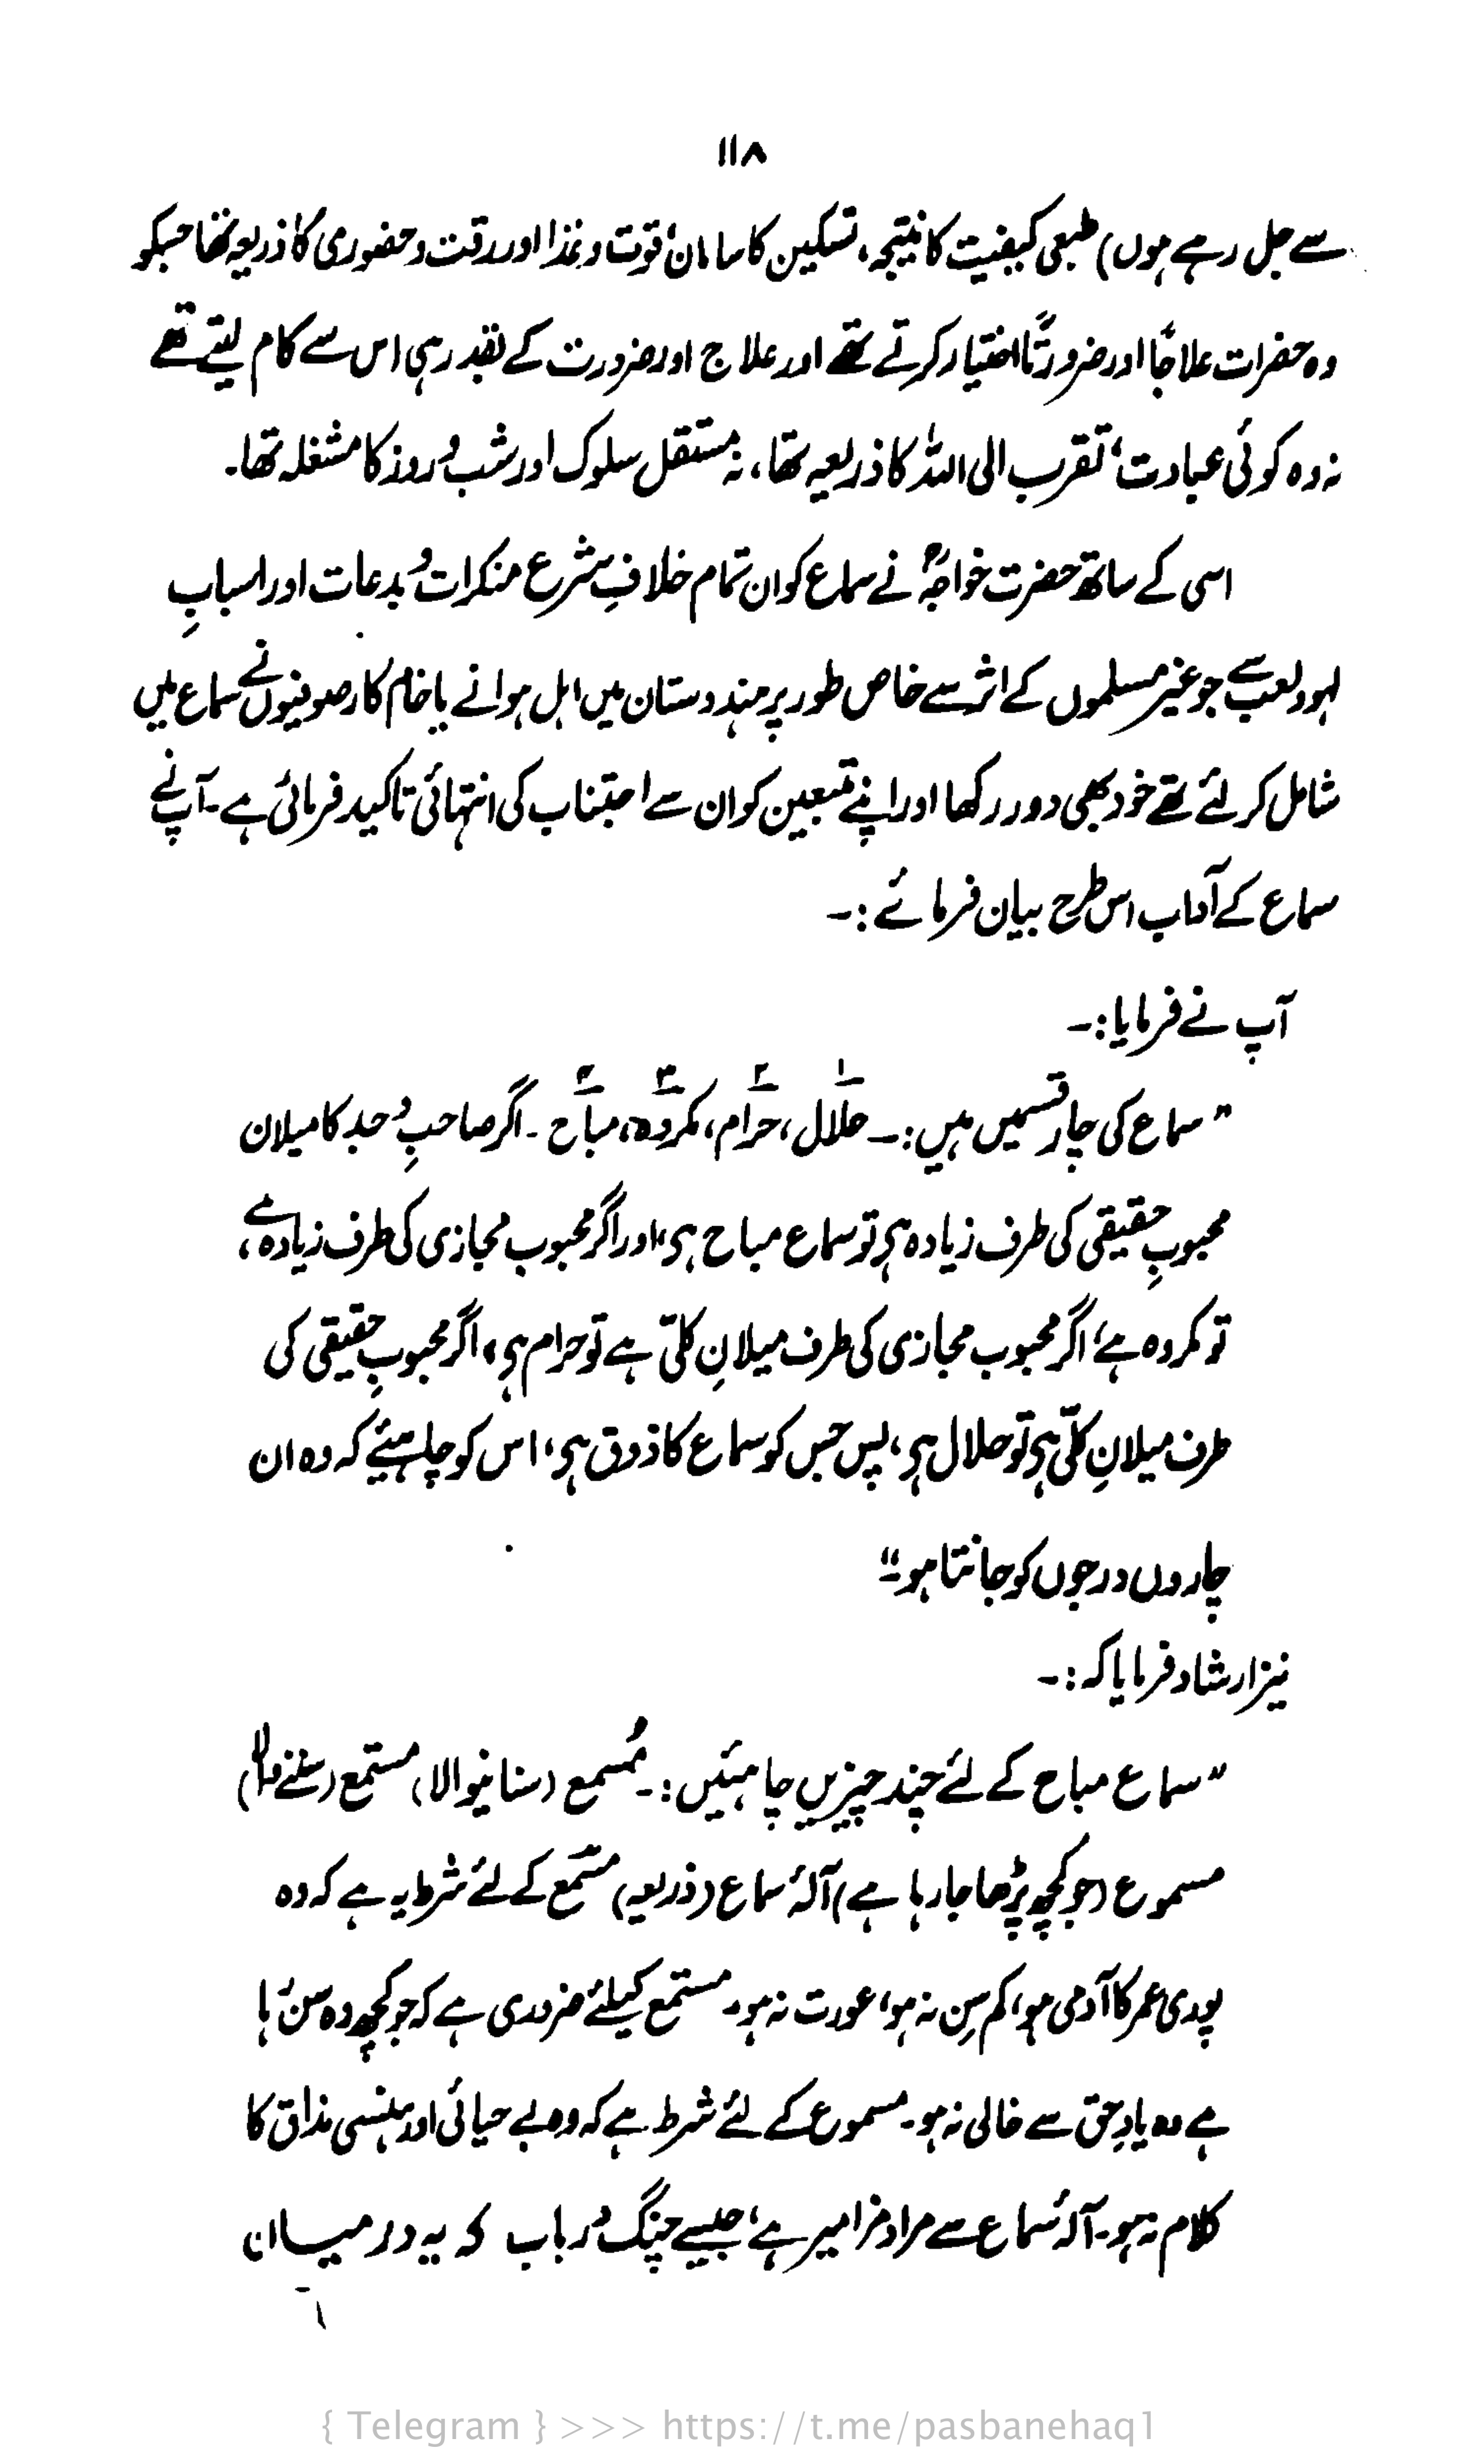 ۱۱۸
سے جل رہے ہوں) طبعی کیفیت کا نتیجہ، تسکین کا سامان، قوت و غذا اور رقت و حضوری کا ذریعہ تھا جسکو
وہ حضرات علاجًا اور ضرورتًا اختیار کرتے تھے اور علاج اور ضرورت کے بقدر ہی اس سے کام لیتے تھے
نہ وہ کوئی عبادت، تقرب الی اللہ کا ذریعہ تھا، نہ مستقل سلوک اور شب و روز کا مشغلہ تھا۔
اسی کے ساتھ حضرت خواجہؒ نے سماع کو ان تمام خلافِ شرع منکرات و بدعات اور اسبابِ
لہو و لعب سے جو غیر مسلموں کے اثر سے خاص طور پر ہندوستان میں اہل ہوا نے یا خام کار صوفیوں نے سماع میں
شامل کر لئے تھے خود بھی دور رکھا اور اپنے متبعین کو ان سے اجتناب کی انتہائی تاکید فرمائی ہے۔ آپ نے
سماع کے آداب اس طرح بیان فرمائے:۔
آپ نے فرمایا:۔
"سماع کی چار قسمیں ہیں:۔ ۱ حلال، ۲ حرام، ۳ مکروہ، ۴ مباح۔ اگر صاحبِ وجد کا میلان
محبوبِ حقیقی کی طرف زیادہ ہی تو سماع مباح ہی، اور اگر محبوب مجازی کی طرف زیادہ ہے،
تو مکروہ ہے، اگر محبوب مجازی کی طرف میلانِ کلّی ہے تو حرام ہی، اگر محبوبِ حقیقی کی
طرف میلانِ کلّی ہی تو حلال ہی، پس جس کو سماع کا ذوق ہی، اس کو چاہیئے کہ وہ ان
چاروں درجوں کو جانتا ہو۔"
نیز ارشاد فرمایا کہ:۔
"سماع مباح کے لئے چند چیزیں چاہئیں:۔ مُسمع (سنانیوالا) مستمع (سننے والا)
مسموع (جو کچھ پڑھا جا رہا ہے) آلۂ سماع (ذریعہ) مسمع کے لئے شرط یہ ہے کہ وہ
پوری عمر کا آدمی ہو، کم سِن نہ ہو، عورت نہ ہو۔ مستمع کیلئے ضروری ہے کہ جو کچھ وہ سن رہا
ہے وہ یادِ حق سے خالی نہ ہو۔ مسموع کے لئے شرط ہے کہ وہ بے حیائی اور ہنسی مذاق کا
کلام نہ ہو۔ آلۂ سماع سے مراد مزامیر ہے، جیسے چنگ و رباب کہ یہ درمیان
{ Telegram } >>> https://t.me/pasbanehaq1